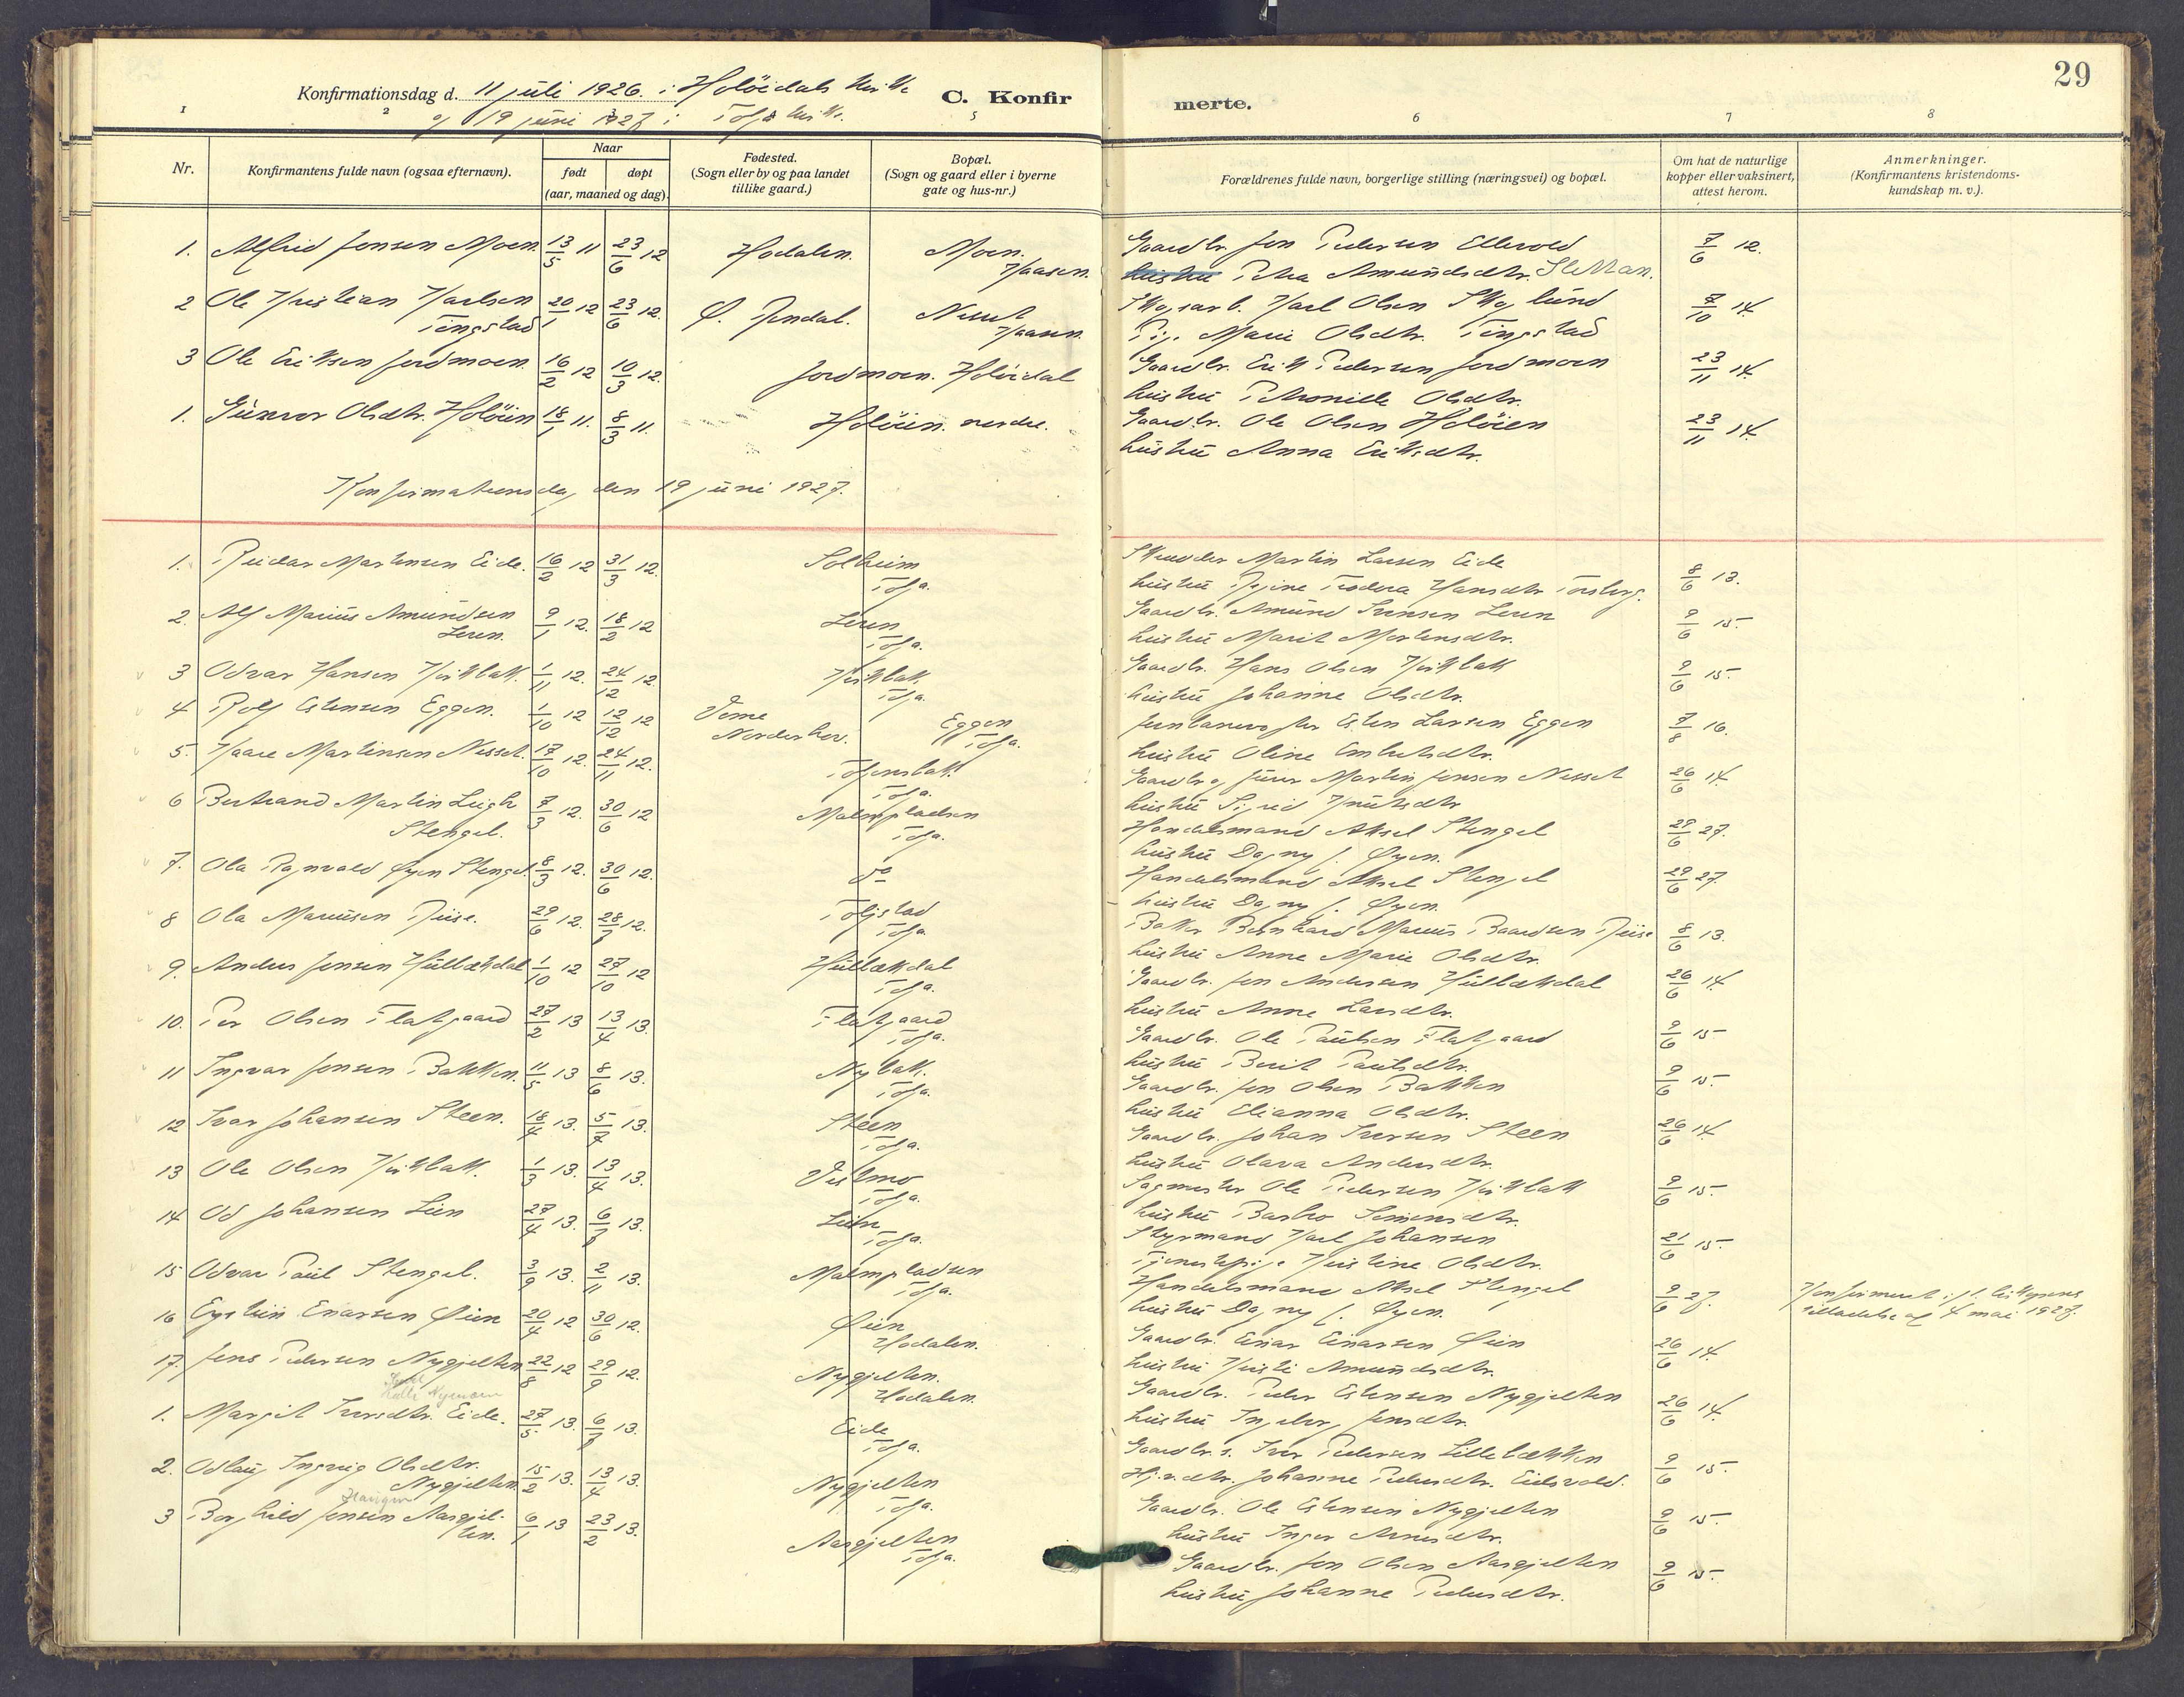 29
Konfirmationsdag d. 11 juli 1926. i Holöidals kirke
C. Konfirmerte.
og 19 juni 1927 i Tolga kirke.
1 2 5 6 7 8
Nr.
Konfirmantens fulde navn (ogsaa efternavn).
Naar
født døpt
(aar, maaned og dag).
Fødested.
(Sogn eller by og paa landet
tillike gaard.)
Bopæl.
(Sogn og gaard eller i byerne
gate og hus-nr.)
Forældrenes fulde navn, borgerlige stilling (næringsvei) og bopæl.
Om hat de naturlige
kopper eller vaksinert,
attest herom.
Anmerkninger.
(Konfirmantens kristendoms-
kundskap m. v.).
1. Alfred Jonsen Moen. 13/5 11 23/6 12 Hodalen. Moen. Gaardbr. Jon Pedersen Ellevold 7/6 12.
Haasen. hustru Petra Amundsdtr. Sletten.
2 Ole Kristian Karlsen 20/1 12 23/6 12. Ø. Rendal. Skogsarb. Karl Olsen Skoglund 7/10 14.
Tingstad Haasen. Pige Marie Olsdtr. Tingstad
3 Ole Eriksen Jordmoen. 16/2 12 10/3 12. Jordmoen. Holöidal Gaardbr. Erik Pedersen Jordmoen 23/11 14.
hustru Petronille Olsdtr.
1. Gunvor Olsdtr. Holöien 18/1 11. 8/3 11. Holöien. nerdre. Gaardbr. Ole Olsen Holöien 23/11 14.
hustru Anna Eriksdtr.
Konfirmationsdag den 19 juni 1927.
1. Reidar Martinsen Eide. 16/2 12 31/3 12. Solheim Skrædder Martin Larsen Eide 8/6 13.
Tolga. hustru Regine Teodora Hansdtr Torsberg.
2. Alf Marius Amundsen 9/1 12. 18/2 12 Leren Gaardbr. Amund Svensen Leren 9/6 15.
Leren. Tolga. hustru Marit Mortensdtr.
3 Odvar Hansen Kirkbak. 1/11 12. 24/12 12. Kirkbak. Gaardbr. Hans Olsen Kirkbak 9/6 15.
Tolga. hustru Johanne Olsdtr.
4 Rolf Estensen Eggen. 1/10 12 12/12 12 Veme Eggen Jernbanevogter Esten Larsen Eggen 7/8 16.
Norderhov. Tolga. hustru Oline Embretsdtr.
5. Kaare Martinsen Nesset. 17/10 12. 24/11 12. Tolgensbak. Gaardbr og furer Martin Jonsen Nesset 26/6 14.
Tolga. hustru Sigrid Knutsdtr
6 Bertrand Martin Leigh 7/3 12. 30/6 12 Malmpladsen Handelsmand Aksel Stengel 29/6 27.
Stengel. Tolga. hustru Dagny f. Øyen.
7. Ola Ragnvald Øyen Stengel. 8/3 12. 30/6 12. do Handelsmand Aksel Stengel 29/6 27.
hustru Dagny f. Øyen.
8 Ola Mariusen Riise. 29/6 12. 28/7 12. Baker Bernhard Marius Baardsen Riise 8/6 13.
Tolga hustru Anne Marie Olsdtr.
9. Anders Jonsen Hullækdal 1/10 12 27/10 12 Hullækdal Gaardbr. Jon Andersen Hullækdal 26/6 14.
Tolga. hustru Anne Larsdtr.
10. Per Olsen Flatgaard 27/2 13 13/4 13. Flatgaard Gaardbr. Ole Paulsen Flatgaard 9/6 15.
Tolga. hustru Berit Paulsdtr.
11 Ingvar Jonsen Bakken. 11/5 13 8/6 13. Nybak. Gaardbr. Jon Olsen Bakken 9/6 15.
Tolga. hustru Elianna Olsdtr.
12 Ivar Johansen Steen. 18/4 13. 5/7 13. Steen Gaardbr. Johan Iversen Steen 26/6 14
Tolga. hustru Olava Andersdtr.
13 Ole Olsen Kirkbak. 1/3 13. 13/4 13. Vestmo Sagmester Ole Pedersen Kirkbak 9/6 15.
Tolga. hustru Barbro Simensdtr.
14 Od Johansen Lien 27/4 13. 6/7 13. Lien Styrmand Karl Johansen 21/6 15.
Tolga. Tjenestepige Kristine Olsdtr.
15 Odvar Paul Stengel. 3/9 13. 2/11 13. Malmpladsen Handelsmand Aksel Stengel 9/6 27. Konfirmert ifl. biskopens
Tolga. hustru Dagny f. Øyen. tilladelse af 4 mai 1927.
16 Eystein Einarsen Øien 20/4 12 30/6 12. Øien Gaardbr. Einar Einarsen Øien 26/6 14.
Hodalen. hustru Kristi Amundsdtr.
17. Jens Pedersen Nygjelten 22/8 12 29/9 12. Nygjelten. Gaardbr. Peder Estensen Nygjelten 26/6 14.
Hodalen. hustru Ingeborg Jensdtr.
1. Margit Iversdtr. Eide. 27/5 13. 6/7 13. Eide Gaardbr.s. Iver Pedersen Lillebækken 9/6 15.
Tolga. Hj.v.dtr. Johanne Pedersdtr. Eidsvold.
2. Odlaug Ingevig Olsdtr. 15/2 13. 13/4 13. Nygjelten Gaardbr. Ole Estensen Nygjelten 9/6 15.
Nygjelten. Tolga. hustru Inger Arnesdtr.
Haugen
3 Borghild Jonsen Aasgjel- 6/1 13 23/2 13. Aasgjelten Gaardbr. Jon Olsen Aasgjelten 9/6 15.
ten. Tolga. hustru Johanne Pedersdtr.